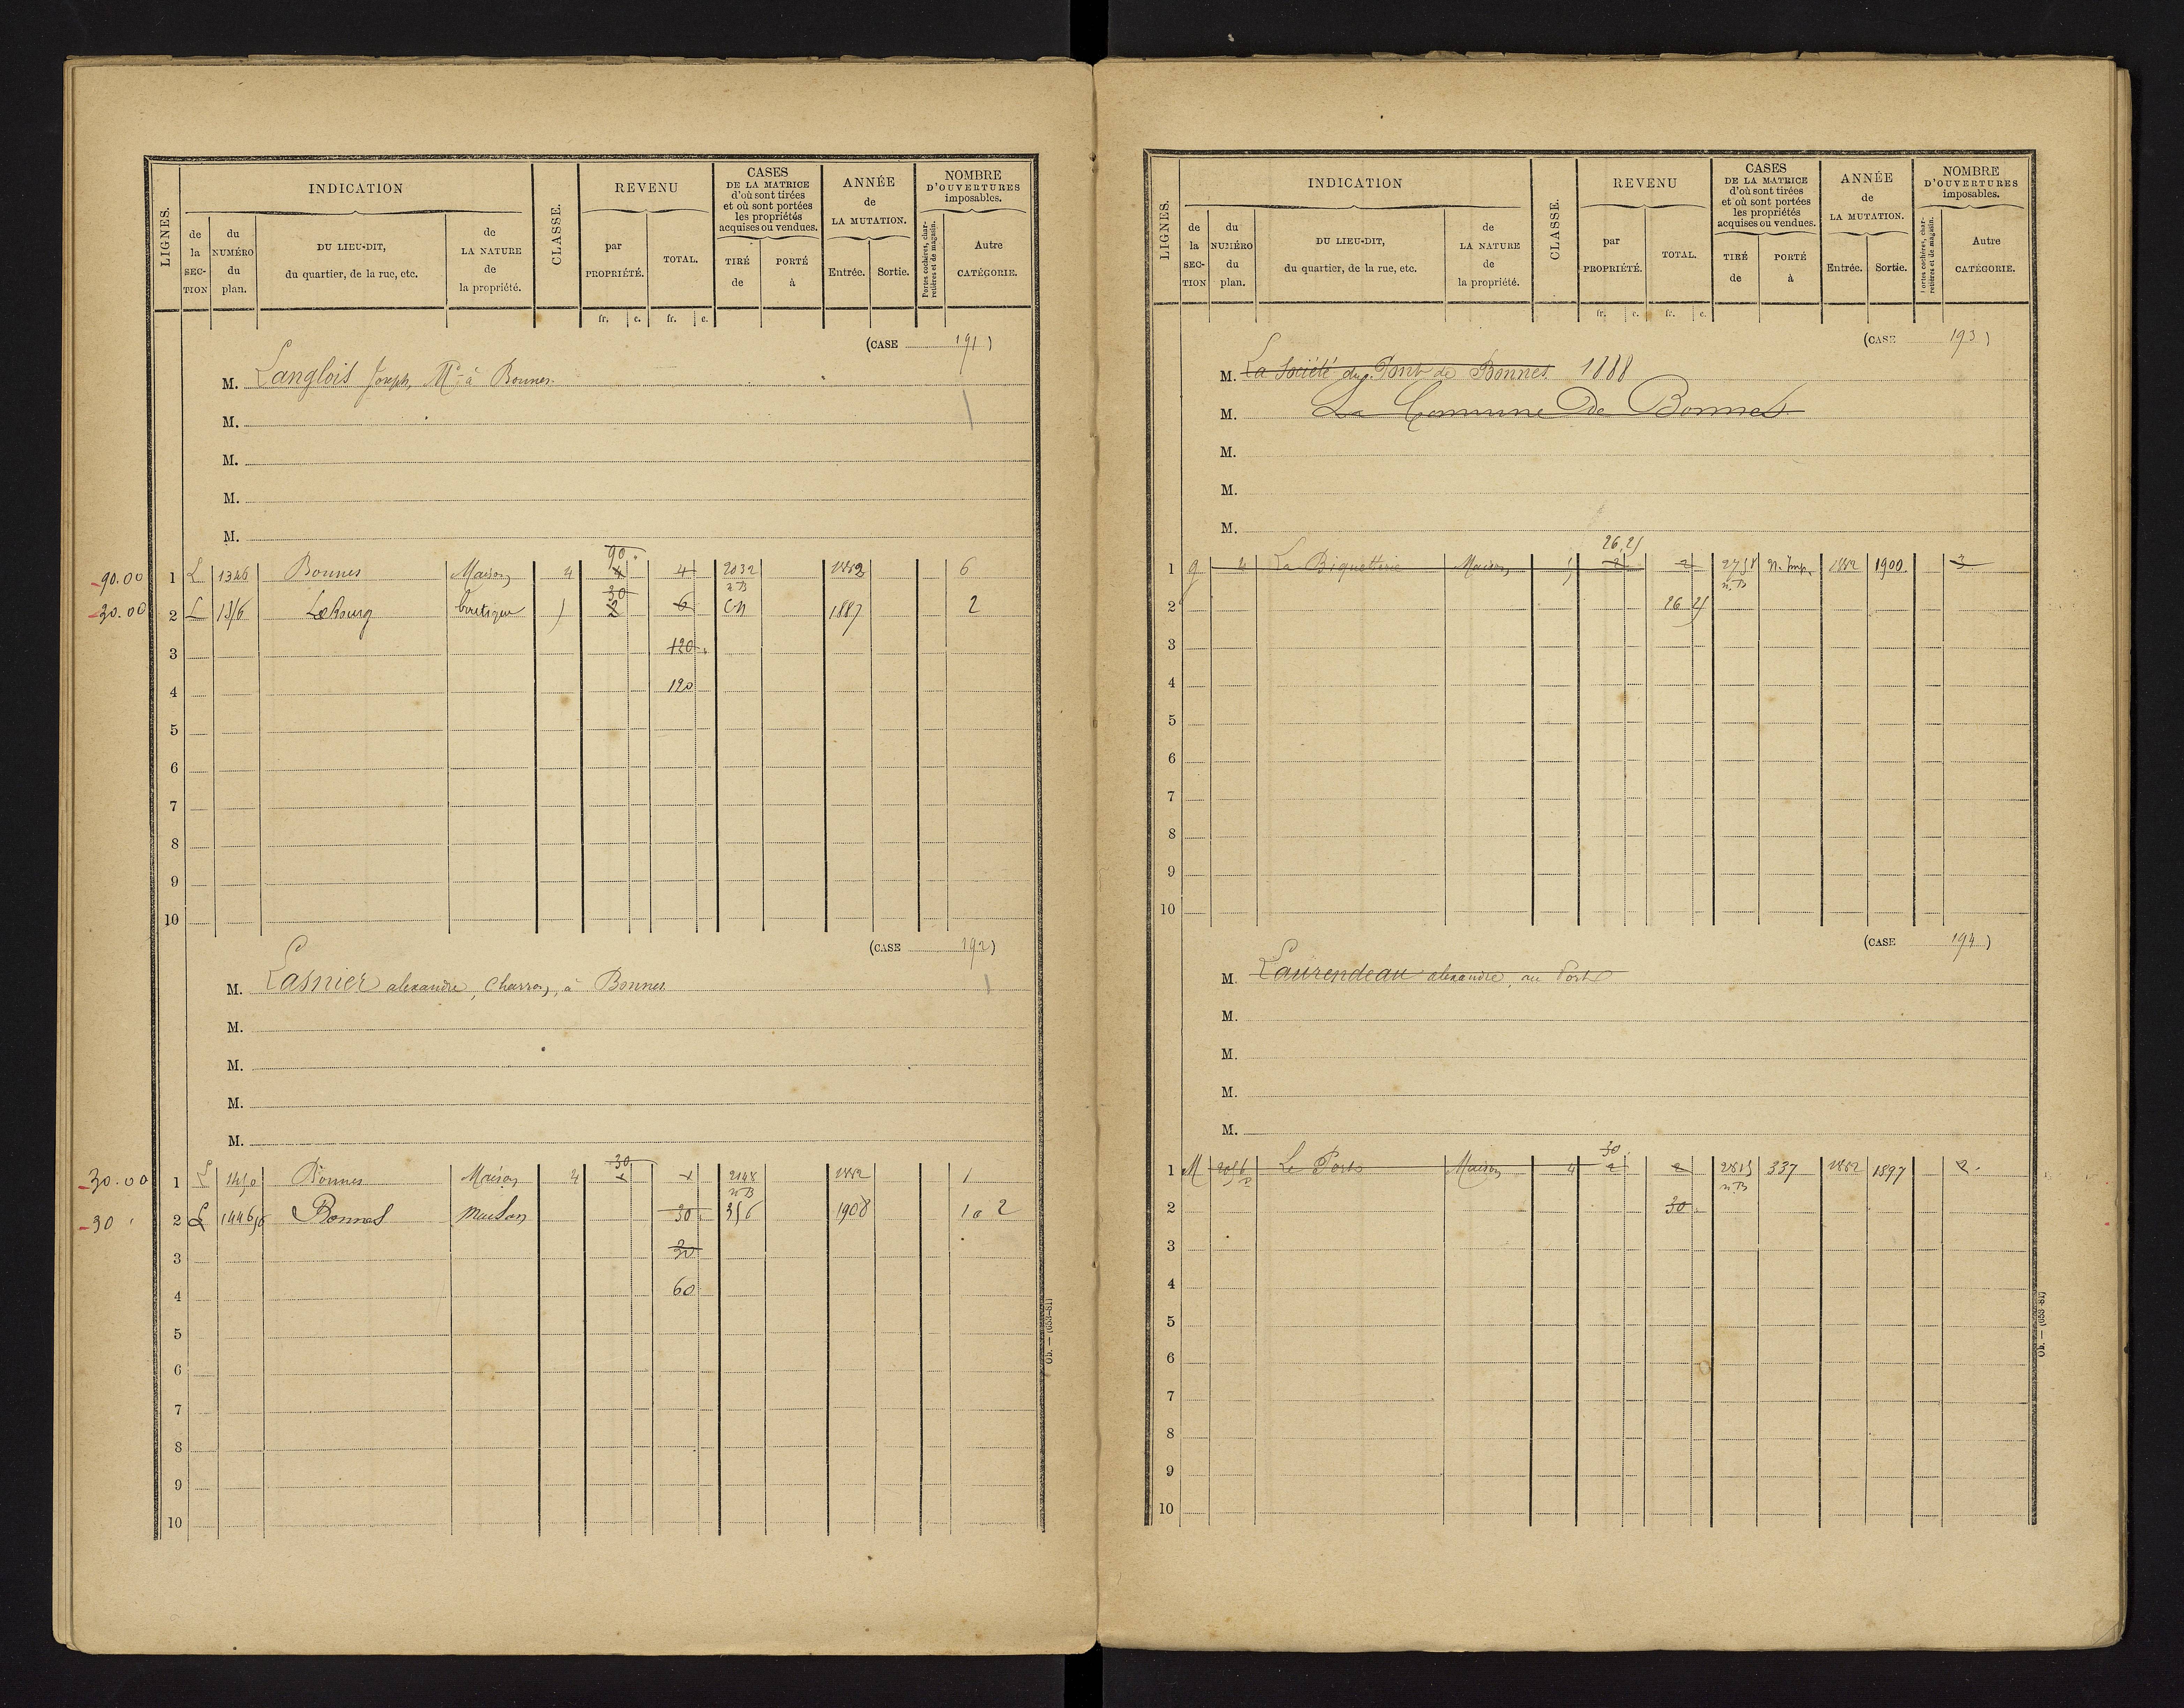 LIGNES.
INDICATION
CLASSE.
REVENU
CASES
DE LA MATRICE
d'où sont tirées
et où sont portées
les propriétés
acquises ou vendues.
ANNÉE
de
LA MUTATION.
NOMBRE
D'OUVERTURES
imposables.
de
la
SEC-
TION
du
NUMÉRO
du
plan.
DU LIEU-DIT,
du quartier, de la rue, etc.
de
LA NATURE
de
la propriété.
par
PROPRIÉTÉ.
TOTAL.
TIRÉ
de
PORTÉ
à
Entrée.
Sortie.
Portes cochères, char-
retières et de magasin.
Autre
CATÉGORIE.
fr. c. fr. c.
(CASE 191)
M. Langlois Joseph, Md à Bonnes.
M.
M.
M.
M.
90.
90.00 1 L 1346 Bonnes Maison 4 4 4 2032 1882 6
30 n.B
30.00 2 L Le Bourg boutique 6 CN 1887 2
3 120
4 120
5
6
7
8
9
10
(CASE 192)
M. Lasnier alexandre, Charron, à Bonnes
M.
M.
M.
M.
30
30.00 1 1450 Bonnes Maison 4 2148 1882 1
n B
30 2 1446 Bonnes Maison 30 356 1908 1 a 2
3 30
4 60
5
6
7
8
9
10
Ob. — (653-81)
LIGNES.
INDICATION
CLASSE.
REVENU
CASES
DE LA MATRICE
d'où sont tirées
et où sont portées
les propriétés
acquises ou vendues.
ANNÉE
de
LA MUTATION.
NOMBRE
D'OUVERTURES
imposables.
de
la
SEC-
TION
du
NUMÉRO
du
plan.
DU LIEU-DIT,
du quartier, de la rue, etc.
de
LA NATURE
de
la propriété.
par
PROPRIÉTÉ.
TOTAL.
TIRÉ
de
PORTÉ
à
Entrée.
Sortie.
Portes cochères, char-
retières et de magasin.
Autre
CATÉGORIE.
fr. c. fr. c.
(CASE 193)
M. La Société du Pont de Bonnes 1888
M. La Commune De Bonnes
M.
M.
M.
26 25
1 G 4 La Biquetterie Maison 5 2 2 2758 N. Imp. 1882 1900 3
n.B
2 26 25
3
4
5
6
7
8
9
10
(CASE 194)
M. Laurendeau alexandre, au Port
M.
M.
M.
M.
30.
1 M 2056 Le Port Maison 4 2 2 2815 337 1882 1897 2.
p n.B
2 30
3
4
5
6
7
8
9
10
Ob. — (653-81)